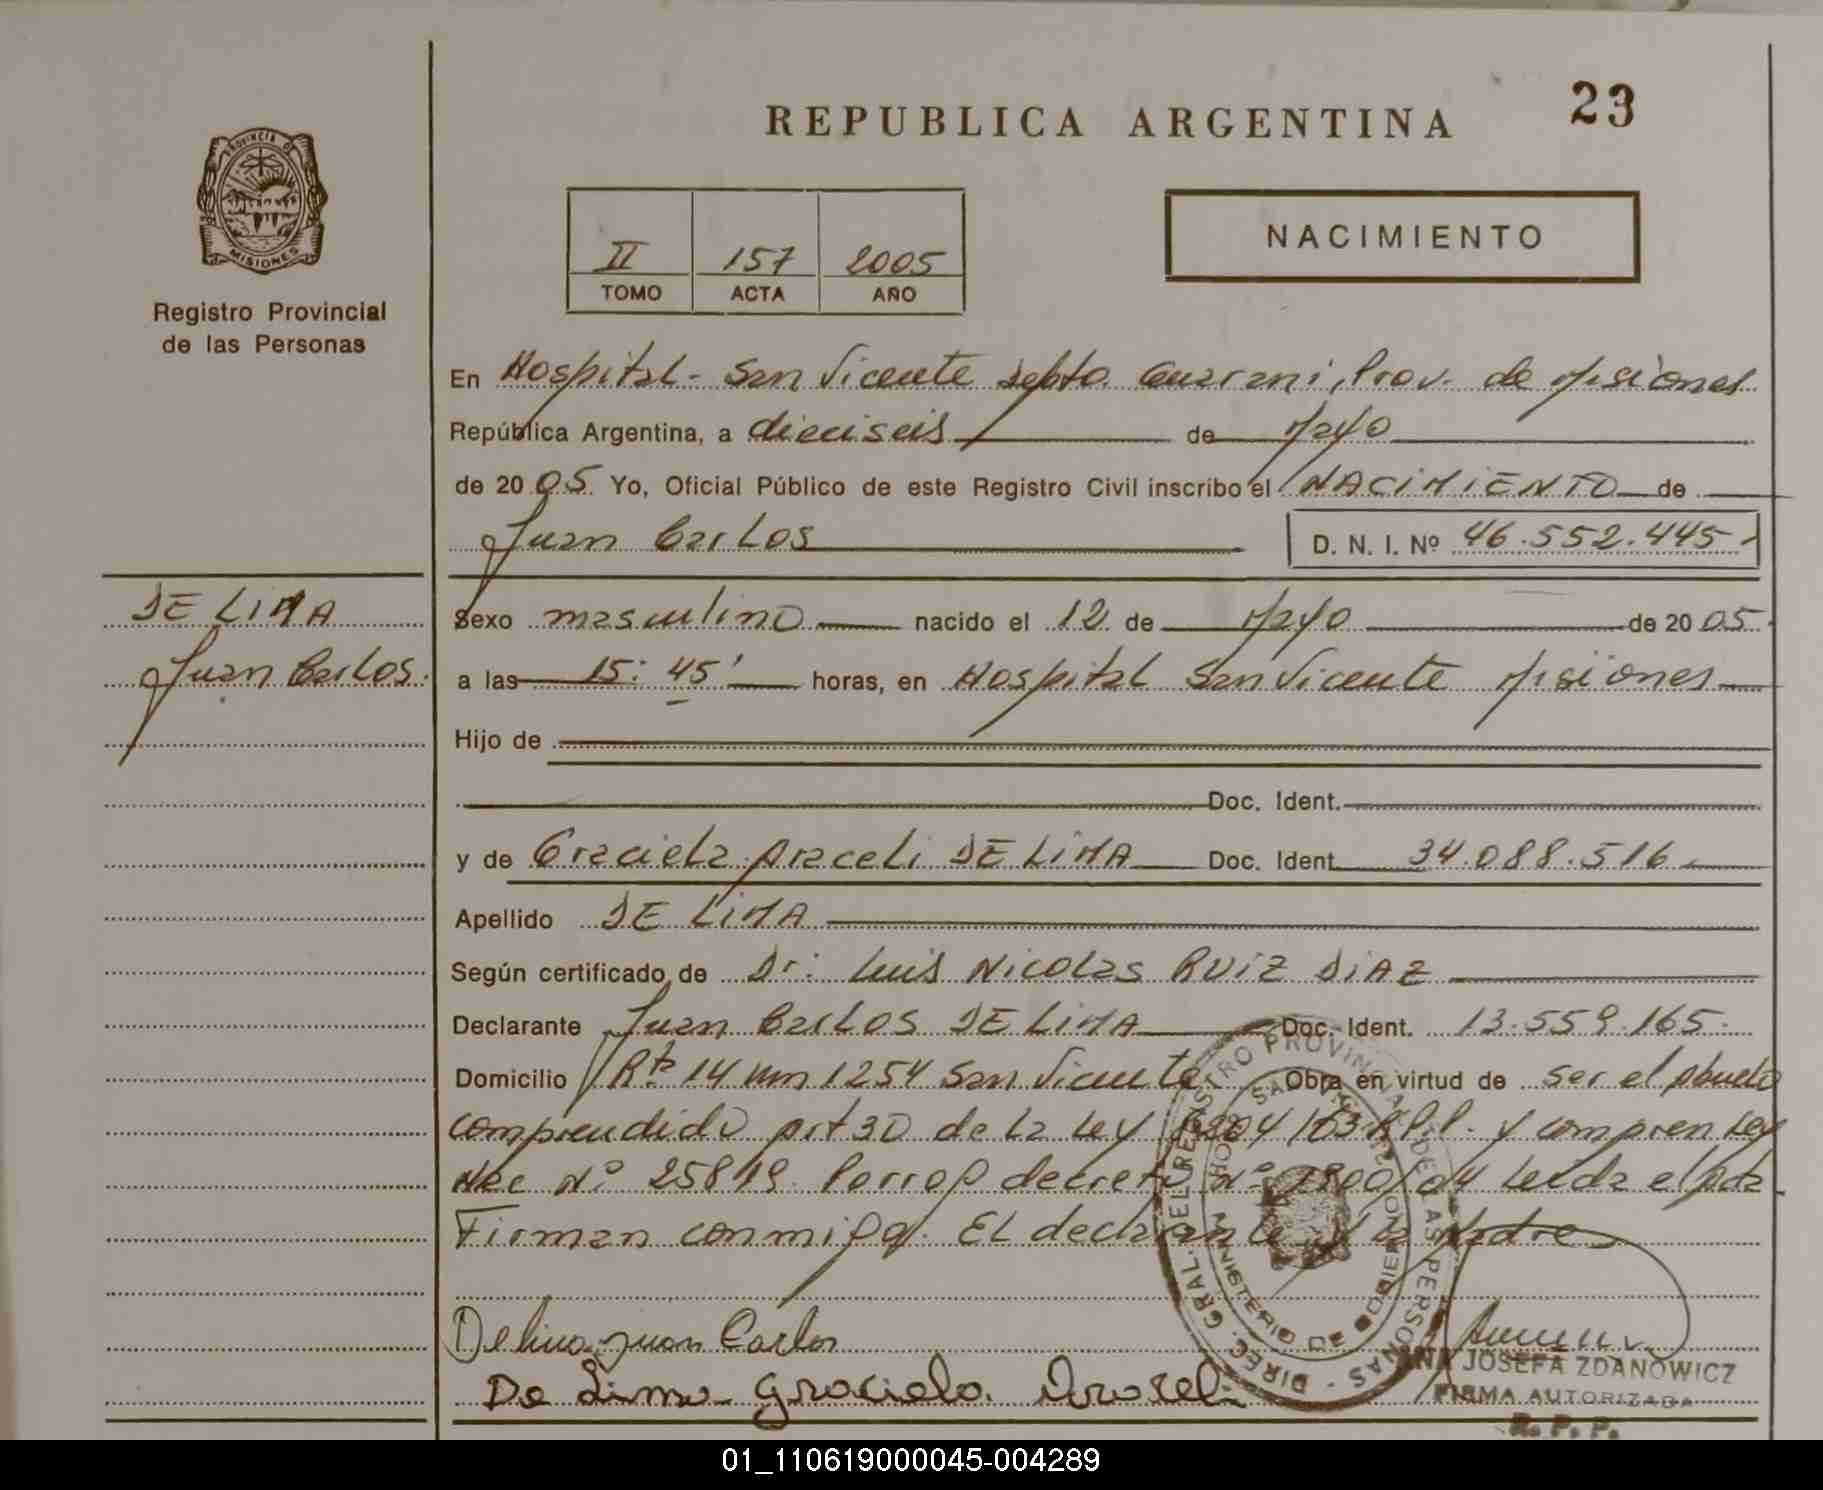 REPUBLICA ARGENTINA
23
PROVINCIA DE
MISIONES
Registro Provincial
de las Personas
II 157 2005
TOMO ACTA AÑO
NACIMIENTO
En Hospital - San Vicente Depto. Guarani, Prov. de Misiones
República Argentina, a dieciseis de Mayo
de 2005 Yo, Oficial Público de este Registro Civil inscribo el NACIMIENTO de
Juan Carlos D. N. I. Nº 46.552.445
DE LIMA
Juan Carlos.
Sexo masculino nacido el 12 de Mayo de 2005.
a las 15:45' horas, en Hospital San Vicente Misiones
Hijo de
Doc. Ident.
y de Graciela Araceli DE LIMA Doc. Ident. 34.088.516.
Apellido DE LIMA
Según certificado de Dr: Luis Nicolas RUIZ DIAZ
Declarante Juan Carlos DE LIMA Doc. Ident. 13.559.165.
Domicilio Rta 14 Km 1254 San Vicente. Obra en virtud de ser el abuelo
comprendido art 30 de la Ley R.P.P. y compren Ley
Nac Nº 25819 decreto Nº Leida el Acta
Firman conmigo. El declarante y la Madre
De lima Juan Carlos
De Lima Graciela
ANA JOSEFA ZDANOWICZ
FIRMA AUTORIZADA
R. P. P.
DIREC. GRAL. DEL REGISTRO PROVINCIAL DE LAS PERSONAS
MINISTERIO DE GOBIERNO
01_110619000045-004289